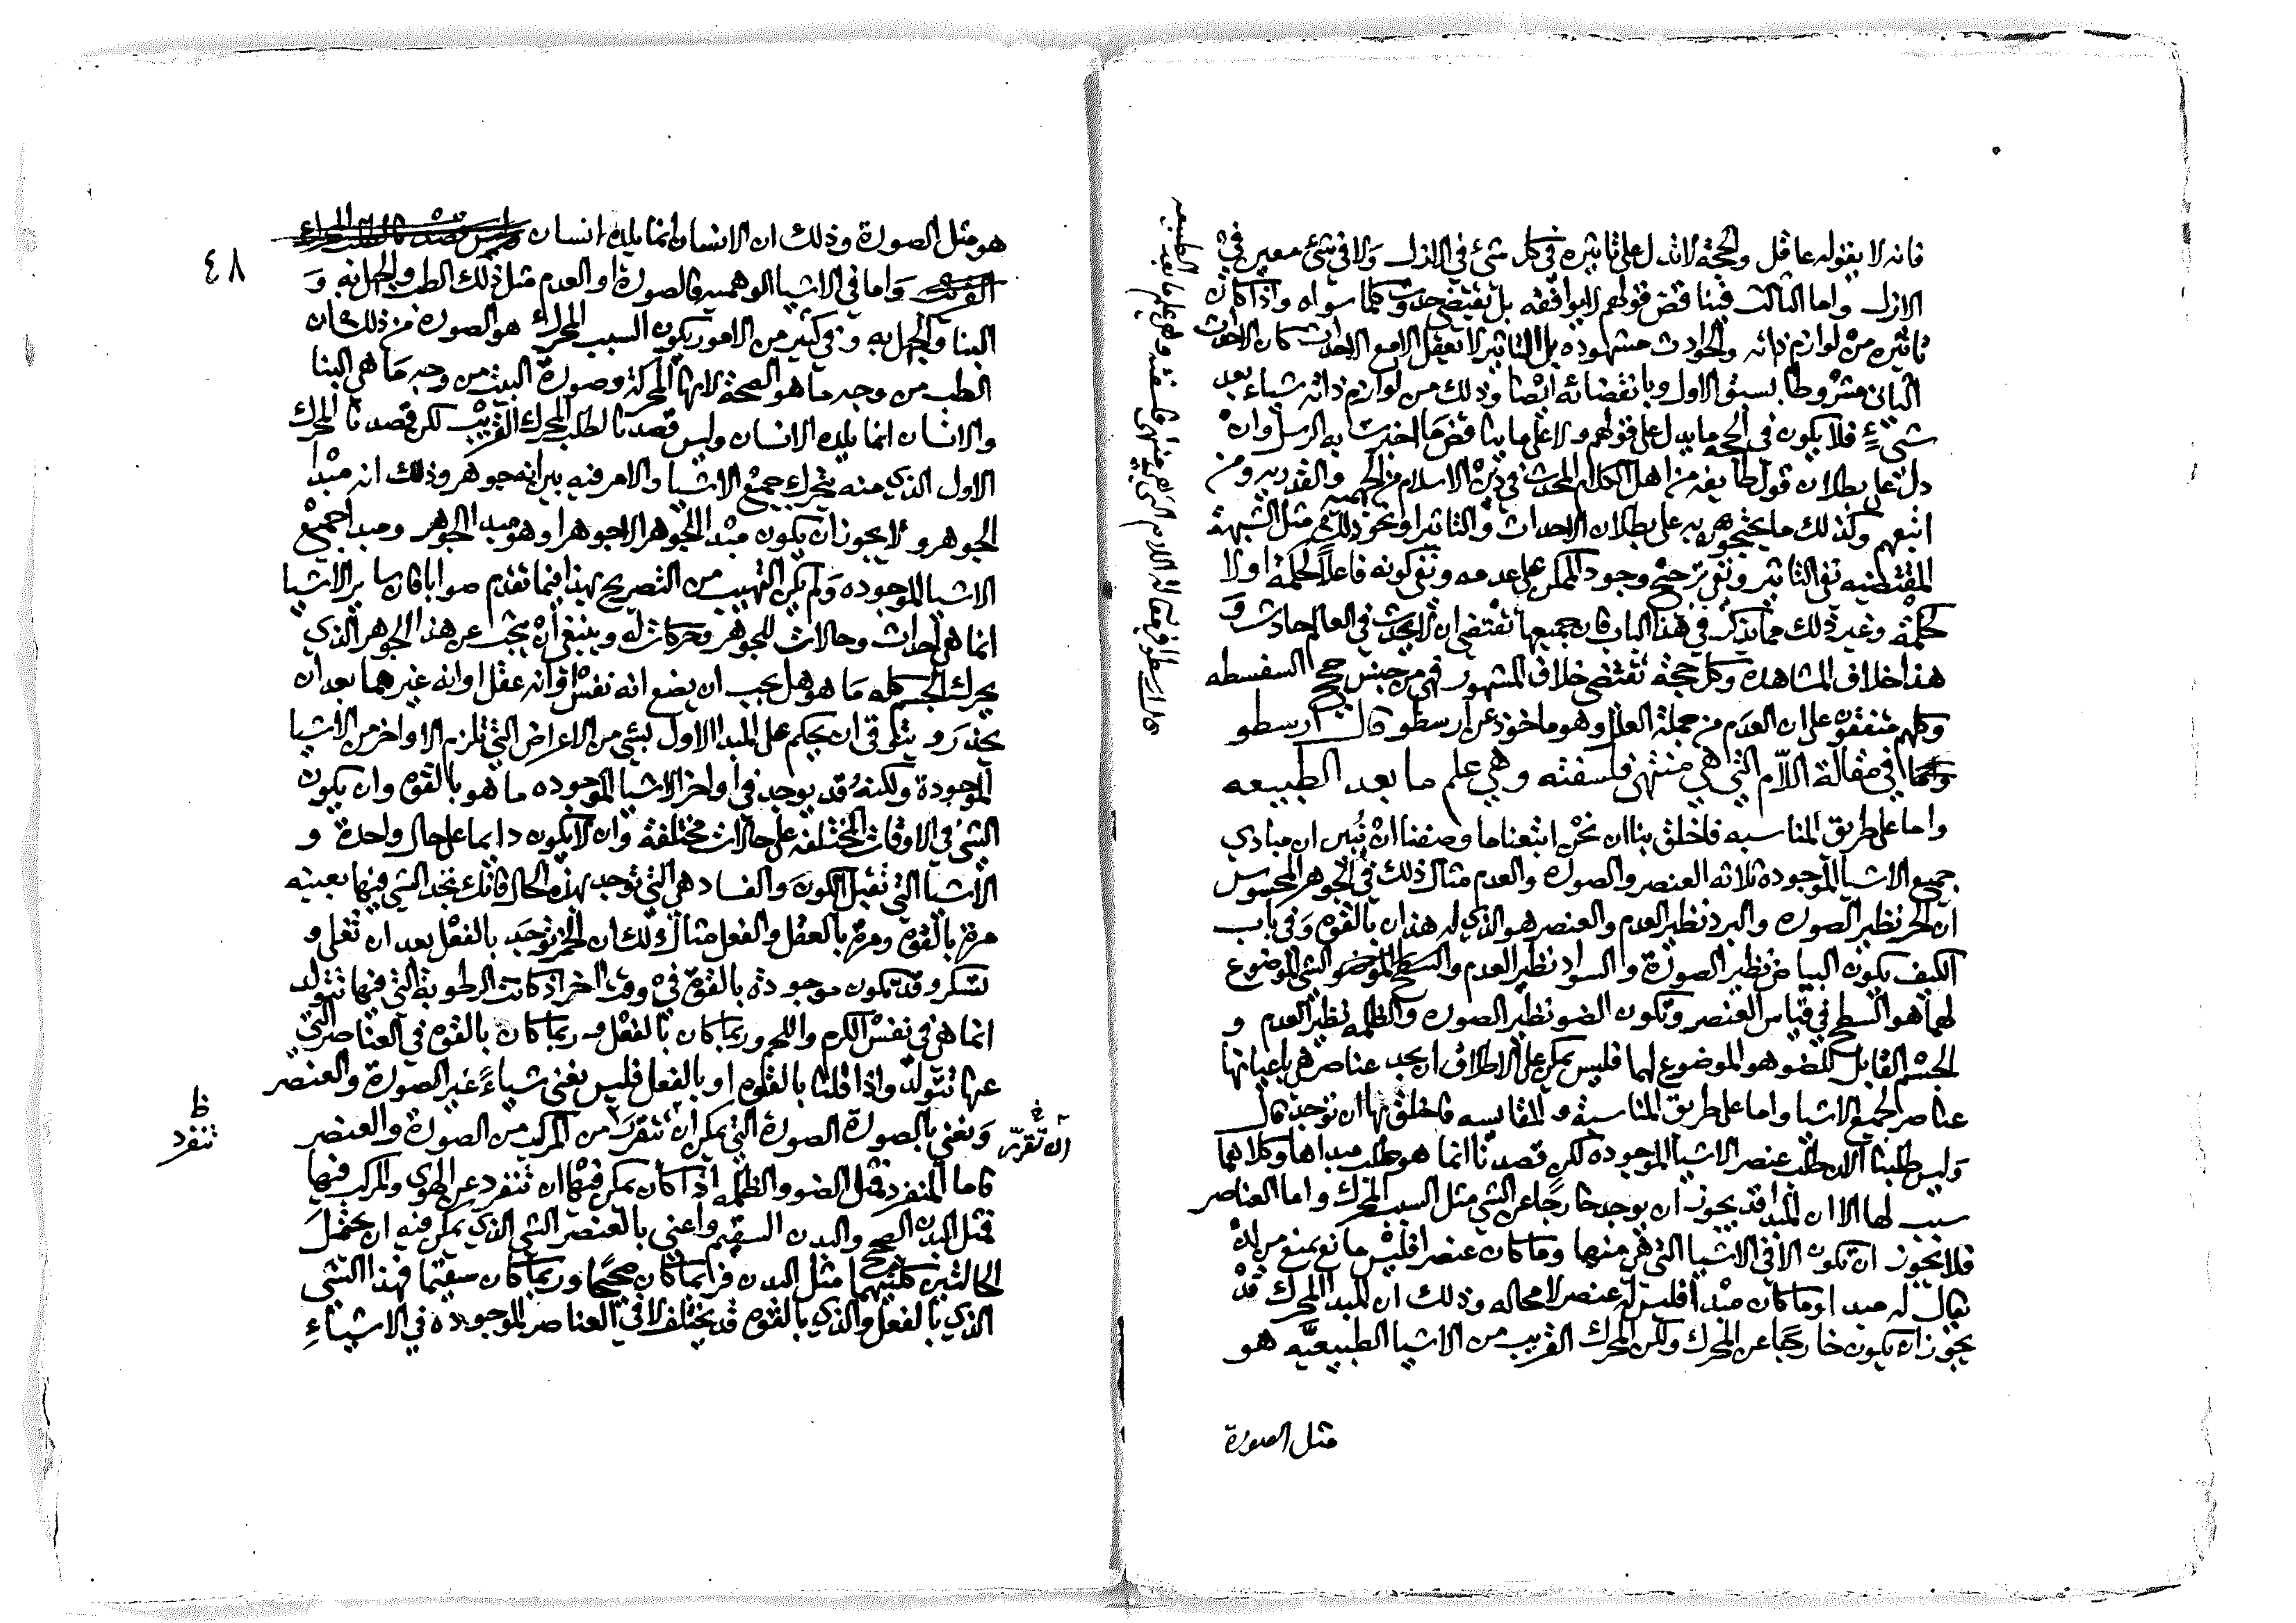 فانه لا يقوله عاقل والحجة لا تدل على تاثيره في كل شئ في الازل ولا في شئ معين في
الازل واما الثالث فيناقض قولهم لا يوافقه بل يقتضي حدوث كلما سواه واذا كان
تاثيره من لوازم ذاته والحوادث مشهوده بل التاثير لا يعقل الا مع الاحداث كان الاحداث
الثاني مشروطا بسبق الاول وبانقضائه ايضا وذلك من لوازم ذاته شياء بعد
شيءٍ فلا يكون في الحجه ما يدل على قولهم ولا على ما يناقض ما اخبرت به الرسل وان
دل على بطلان قول طايفه من اهل الكلام المحدث في دين الاسلام من الجهميه والقدريه ومن
اتبعهم وكذلك ما يحتجون به على بطلان الاحداث والتاثير او نحو ذلك من مثل الشبهة
المقتضيه نفي التاثير ونفي ترجيح وجود الممكن على عدمه ونفي كونه فاعلاً لحكمة او لا
لحكمة وغير ذلك مما يذكر في هذا الباب فان جميعها تقتضي ان لا يحدث في العالم حادث و
هذا خلاف المشاهدة وكل حجة تقتضي خلاف المشهور فهي من جنس حجج السفسطه
وكلهم متفقون على ان العدم من جملة العلل وهو ماخوذ عن ارسطو قال ارسطو
في مقالة اللّام التي هي منتهى فلسفته وهي علم ما بعد الطبيعه
واما على طريق المناسبه فاخلق بنا ان نحن اتبعنا ما وصفنا ان نُبين ان مبادي
جميع الاشيا الموجودة ثلاثه العنصر والصورة والعدم مثال ذلك في الجوهر المحسوس
ان الحر نظير الصوره والبرد نظير العدم والعنصر هو الذي له هذان بالقوه وفي باب
الكيف يكون البياض نظير الصورة والسواد نظير العدم والشي الموضوع
لهما هو السطح في قياس العنصر وتكون الضو نظير الصوره والظلمه نظير العدم و
الجسم القابل للضو هو الموضوع لهما فليس يمكن على الاطلاق ان يجد عناصر هي باعيانها
عناصر لجميع الاشيا واما على طريق المناسبة والمقايسه فاخلق بها ان توجد قال
وليس طلبنا الان طلب عنصر الاشيا الموجوده لكن قصدنا انما هو طلب مبداها وكلاهما
سبب لها الا ان المبدا قد يجوز ان يوجد خارجًا عن الشي مثل السبب المحرك واما العناصر
فلا يجوز ان تكون الا في الاشيا التي هي منها وما كان عنصرا فليس مانع يمنع من ان
يقال له مبدا وما كان مبدا فليس له عنصر لا محاله وذلك ان المبدا المحرك قد
يجوز ان يكون خارجًا عن المحرك ولكن المحرك القريب من الاشيا الطبيعيّه هو
مثل الصورة
قال ارسطو في مقالة اللام التي هي منتهى فلسفته وهي علم ما بعد الطبيعه
٤٨
هو مثل الصورة وذلك ان الانسان انما يلده انسان
واما في الاشيا الوهميه فالصورة او العدم مثل ذلك الطب والجهل به و
البنا والجهل به وفي كثير من الامور يكون السبب المحرك هو الصورة من ذلك ان
الطب من وجه ما هو الصحة لانها المحركة وصورة البيت من وجه ما هي البنا
والانسان انما يلده الانسان وليس قصدنا لطلب المحرك القريب لكن قصدنا المحرك
الاول الذي منه يتحرك جميع الاشيا والامر فيه بين انه جوهر وذلك انه مبدا
الجوهر ولا يجوز ان يكون مبدا الجوهر الا جوهرا وهو مبدا الجوهر ومبدا جميع
الاشيا الموجوده ولم يكن التهيب من التصريح بهذا فيما تقدم صوابا فان ساير الاشيا
انما هي احداث وحالات للجوهر وحركات له وينبغي ان نبحث عن هذا الجوهر الذي
يحرك الجسم كله ما هو هل يجب ان يضع انه نفس او انه عقل او انه غيرهما بعد ان
يحذر ويتوقى ان يحكم على المبدا الاول بشي من الاعراض التي تلزم الاواخر من الاشيا
الموجودة ولكنهُ قد يوجد في اواخر الاشيا الموجوده ما هو بالقوه وان يكون
الشئ في الاوقات المختلفه على حالات مختلفة وان لا يكون دايما على حال واحدة و
الاشيا التي تقبل الكون والفساد هي التي توجد بهذه الحال فانك تجد الشي فيها بعينه
مرة بالقوه ومرة بالعقل والفعل مثال ذلك ان الخمر توجد بالفعل بعد ان تغلى و
تسكر وقد تكون موجودة بالقوة في وقت اخر اذ كانت الرطوبة التي فيها تتولد
انما هي في نفس الكرم واللحم وربما كان بالفعل وربما كان بالقوه في العناصر التي
عنها تتولد واذا قلنا بالقوه او بالفعل فليس نعني شياءً غير الصورة والعنصر
ونعني بالصورة الصورة التي يمكن ان تنفرد من المركب من الصورة والعنصر
ظ
تنفرد
فاما المنفرد فمثل الضو والظلمه اذا كان يمكن فيها ان تنفرد عن الهوى والمركب فيها
فمثل البدن الصحيح والبدن السقيم واعني بالعنصر الشي الذي يمكن فيه ان يحتمل
الحالتين كلتيهما مثل البدن فربما كان صحيحًا وربما كان سقيما فهذا الشي
الذي بالفعل والذي بالقوه قد يختلف لا في العناصر الموجوده في الاشياءِ